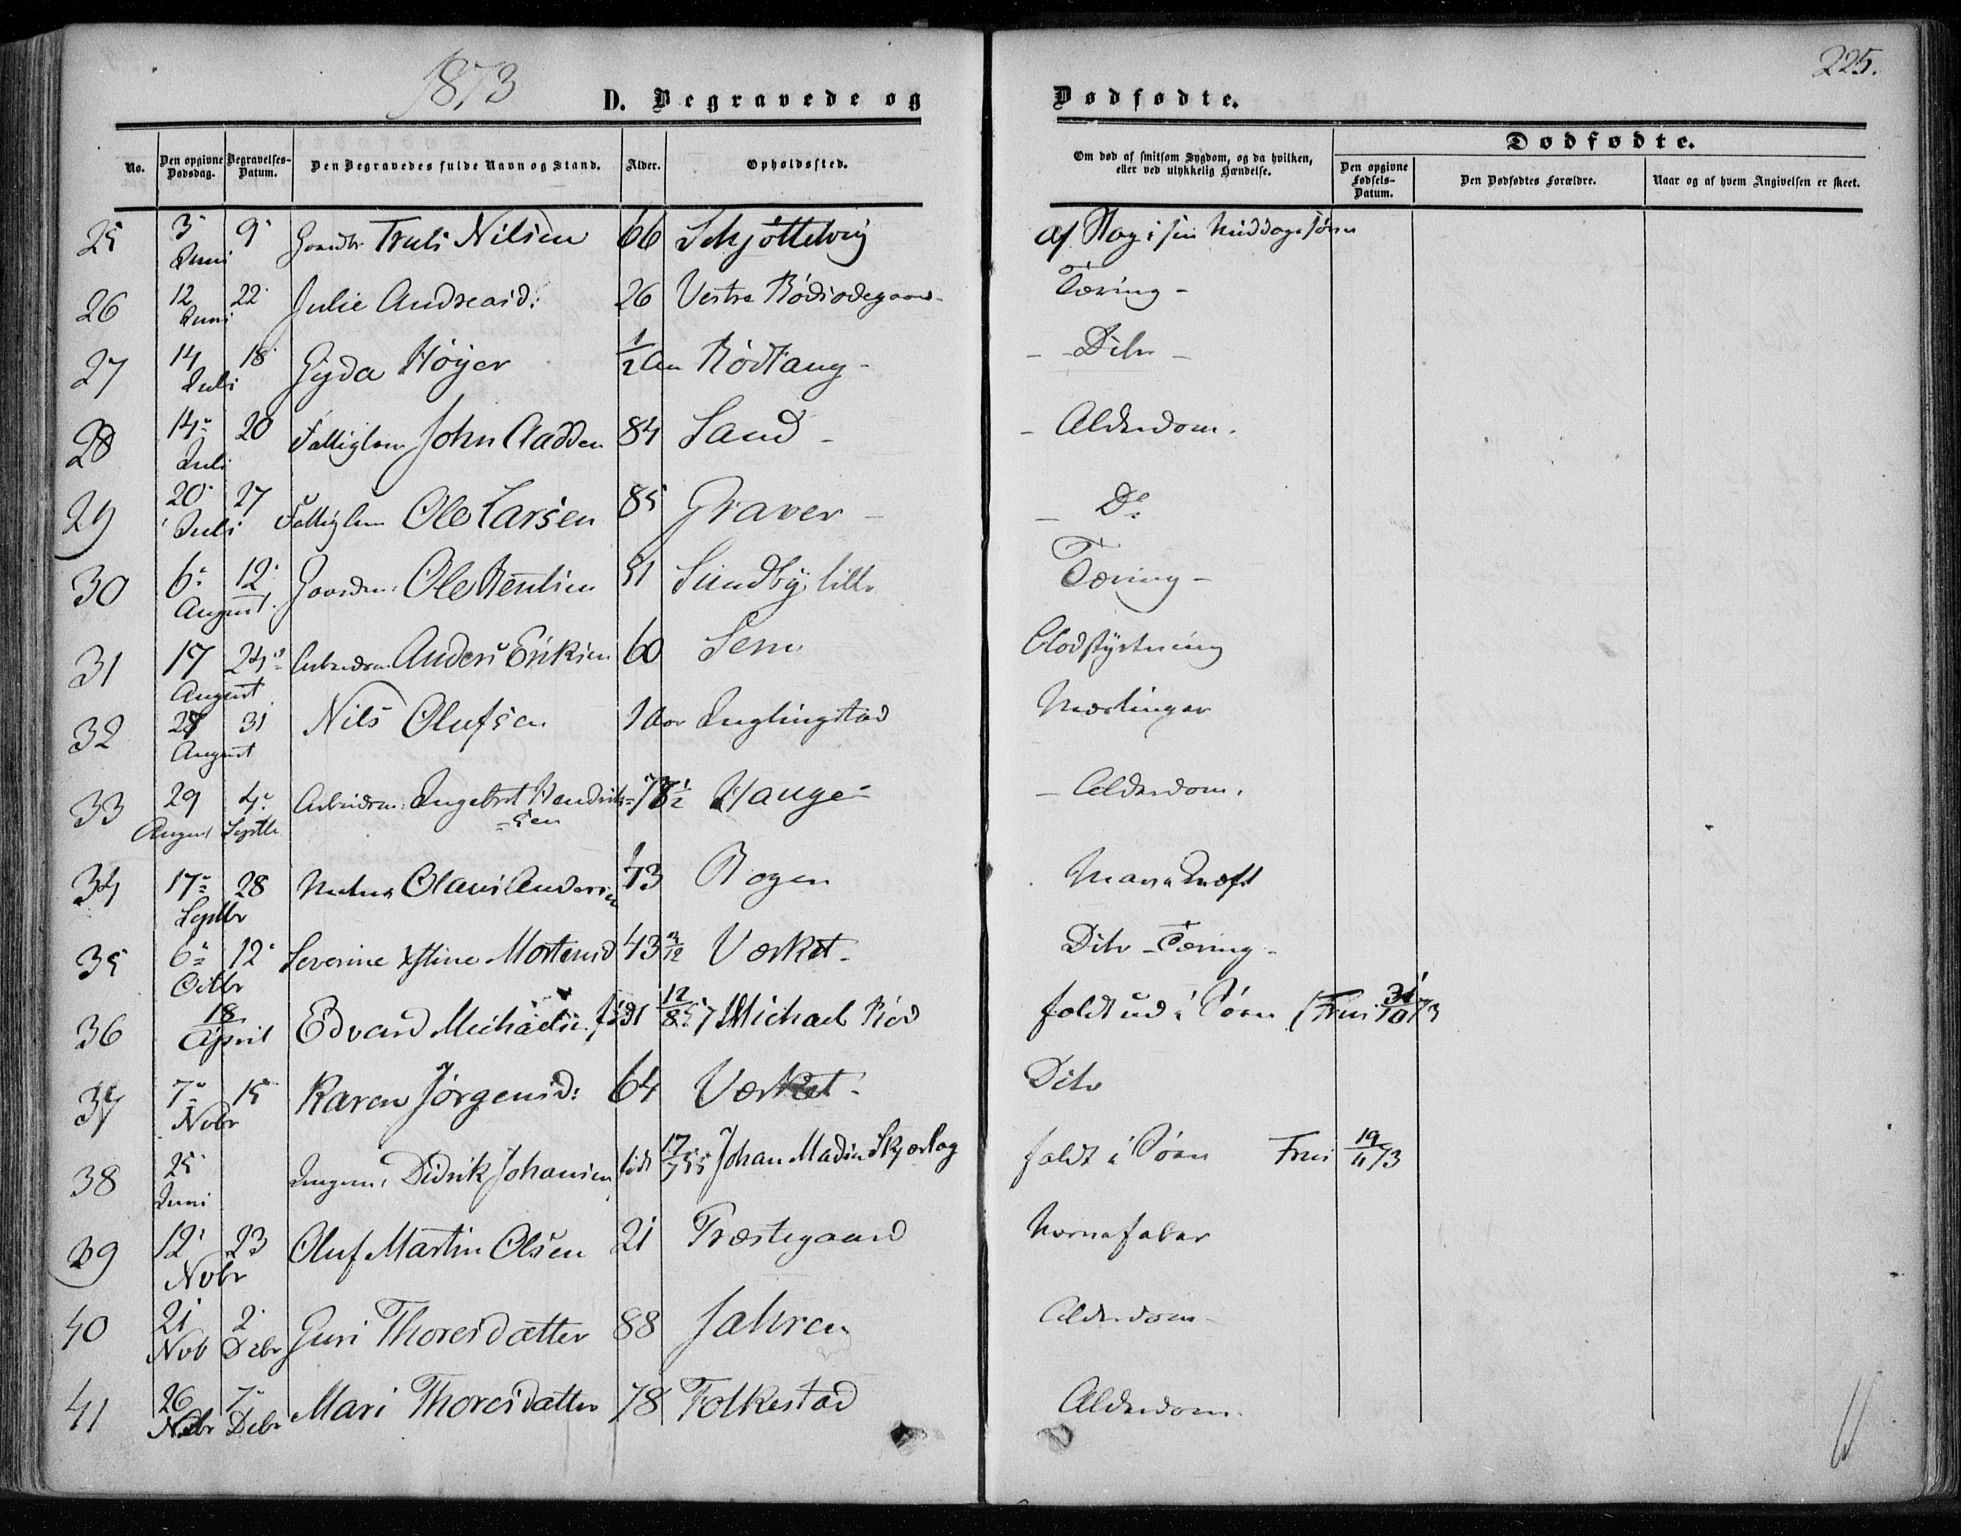 1873
225.
D. Begravede og Dødfødte.
No. Den opgivne Dødsdag. Begravelses-Datum. Den Begravedes fulde Navn og Stand. Alder. Opholdssted. Om død af smitsom Sygdom, og da hvilken, eller ved ulykkelig Hændelse. Dødfødte.
Den opgivne Fødsels-Datum. Den Dødfødtes Forældre. Naar og af hvem Angivelsen er skeet.
25 3 Juni 9 Truls Nilsen 66 af Slag i sin Middagssøvn
26 12 Juni 22 Julie Andreasd: 26 Vestre Tæring -
27 14 Juli 18 Gyda Høyer 1/2 Aar Rødtang - - Dito -
28 14 Juli 20 Fattiglem John Aadden 84 Sand - - Alderdom.
29 20 Juli 27 Fattiglem Ole Larsen 85 Graver - - Do
30 6 August 12 Gaardm. Ole 51 Sundby lille Tæring -
31 17 August 24 Arbeidsm. Anders Eriksen 60 Sem Blodstyrtning
32 August 31 Nils Olufsen 1 Aar Inglingstad Mæslinger
33 29 August 4 Septbr Arbeidsm: Ingebret Hendrik=
=sen Hauge - - Alderdom.
34 17 Septbr 28 Olaus Andersen Bogen
35 6 Octbr 12 Severine Xstine Mortensd 43 3/12 Værket - Dito - Tæring -
36 18 April Edvard Michaelsen født 12/8 57 Michael Rød faldt ud i Søen
37 7 Novbr 15 Karen Jørgensd: 64 Værket - Dito
38 25 Juni Didrik Johansen født 17/7 55 faldt i Søen 19/11 73
39 12 Novbr 23 Oluf Martin Olsen 21 Præstegaard Nervefeber
40 21 Nob 2 Debr Guri Thoresdatter 88 Jahren Alderdom -
41 26 Nobr 7 Debr Mari Thoresdatter 78 Folkestad Alderdom.